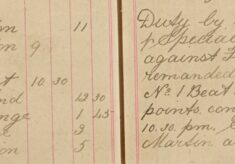 on 11
on 9
t 10 30
nd 12 30
nge 1 45
e 2
on 5
Duty by
Special
against
remanded
No 1 Beat
points. con
10.30. pm.
Marson a